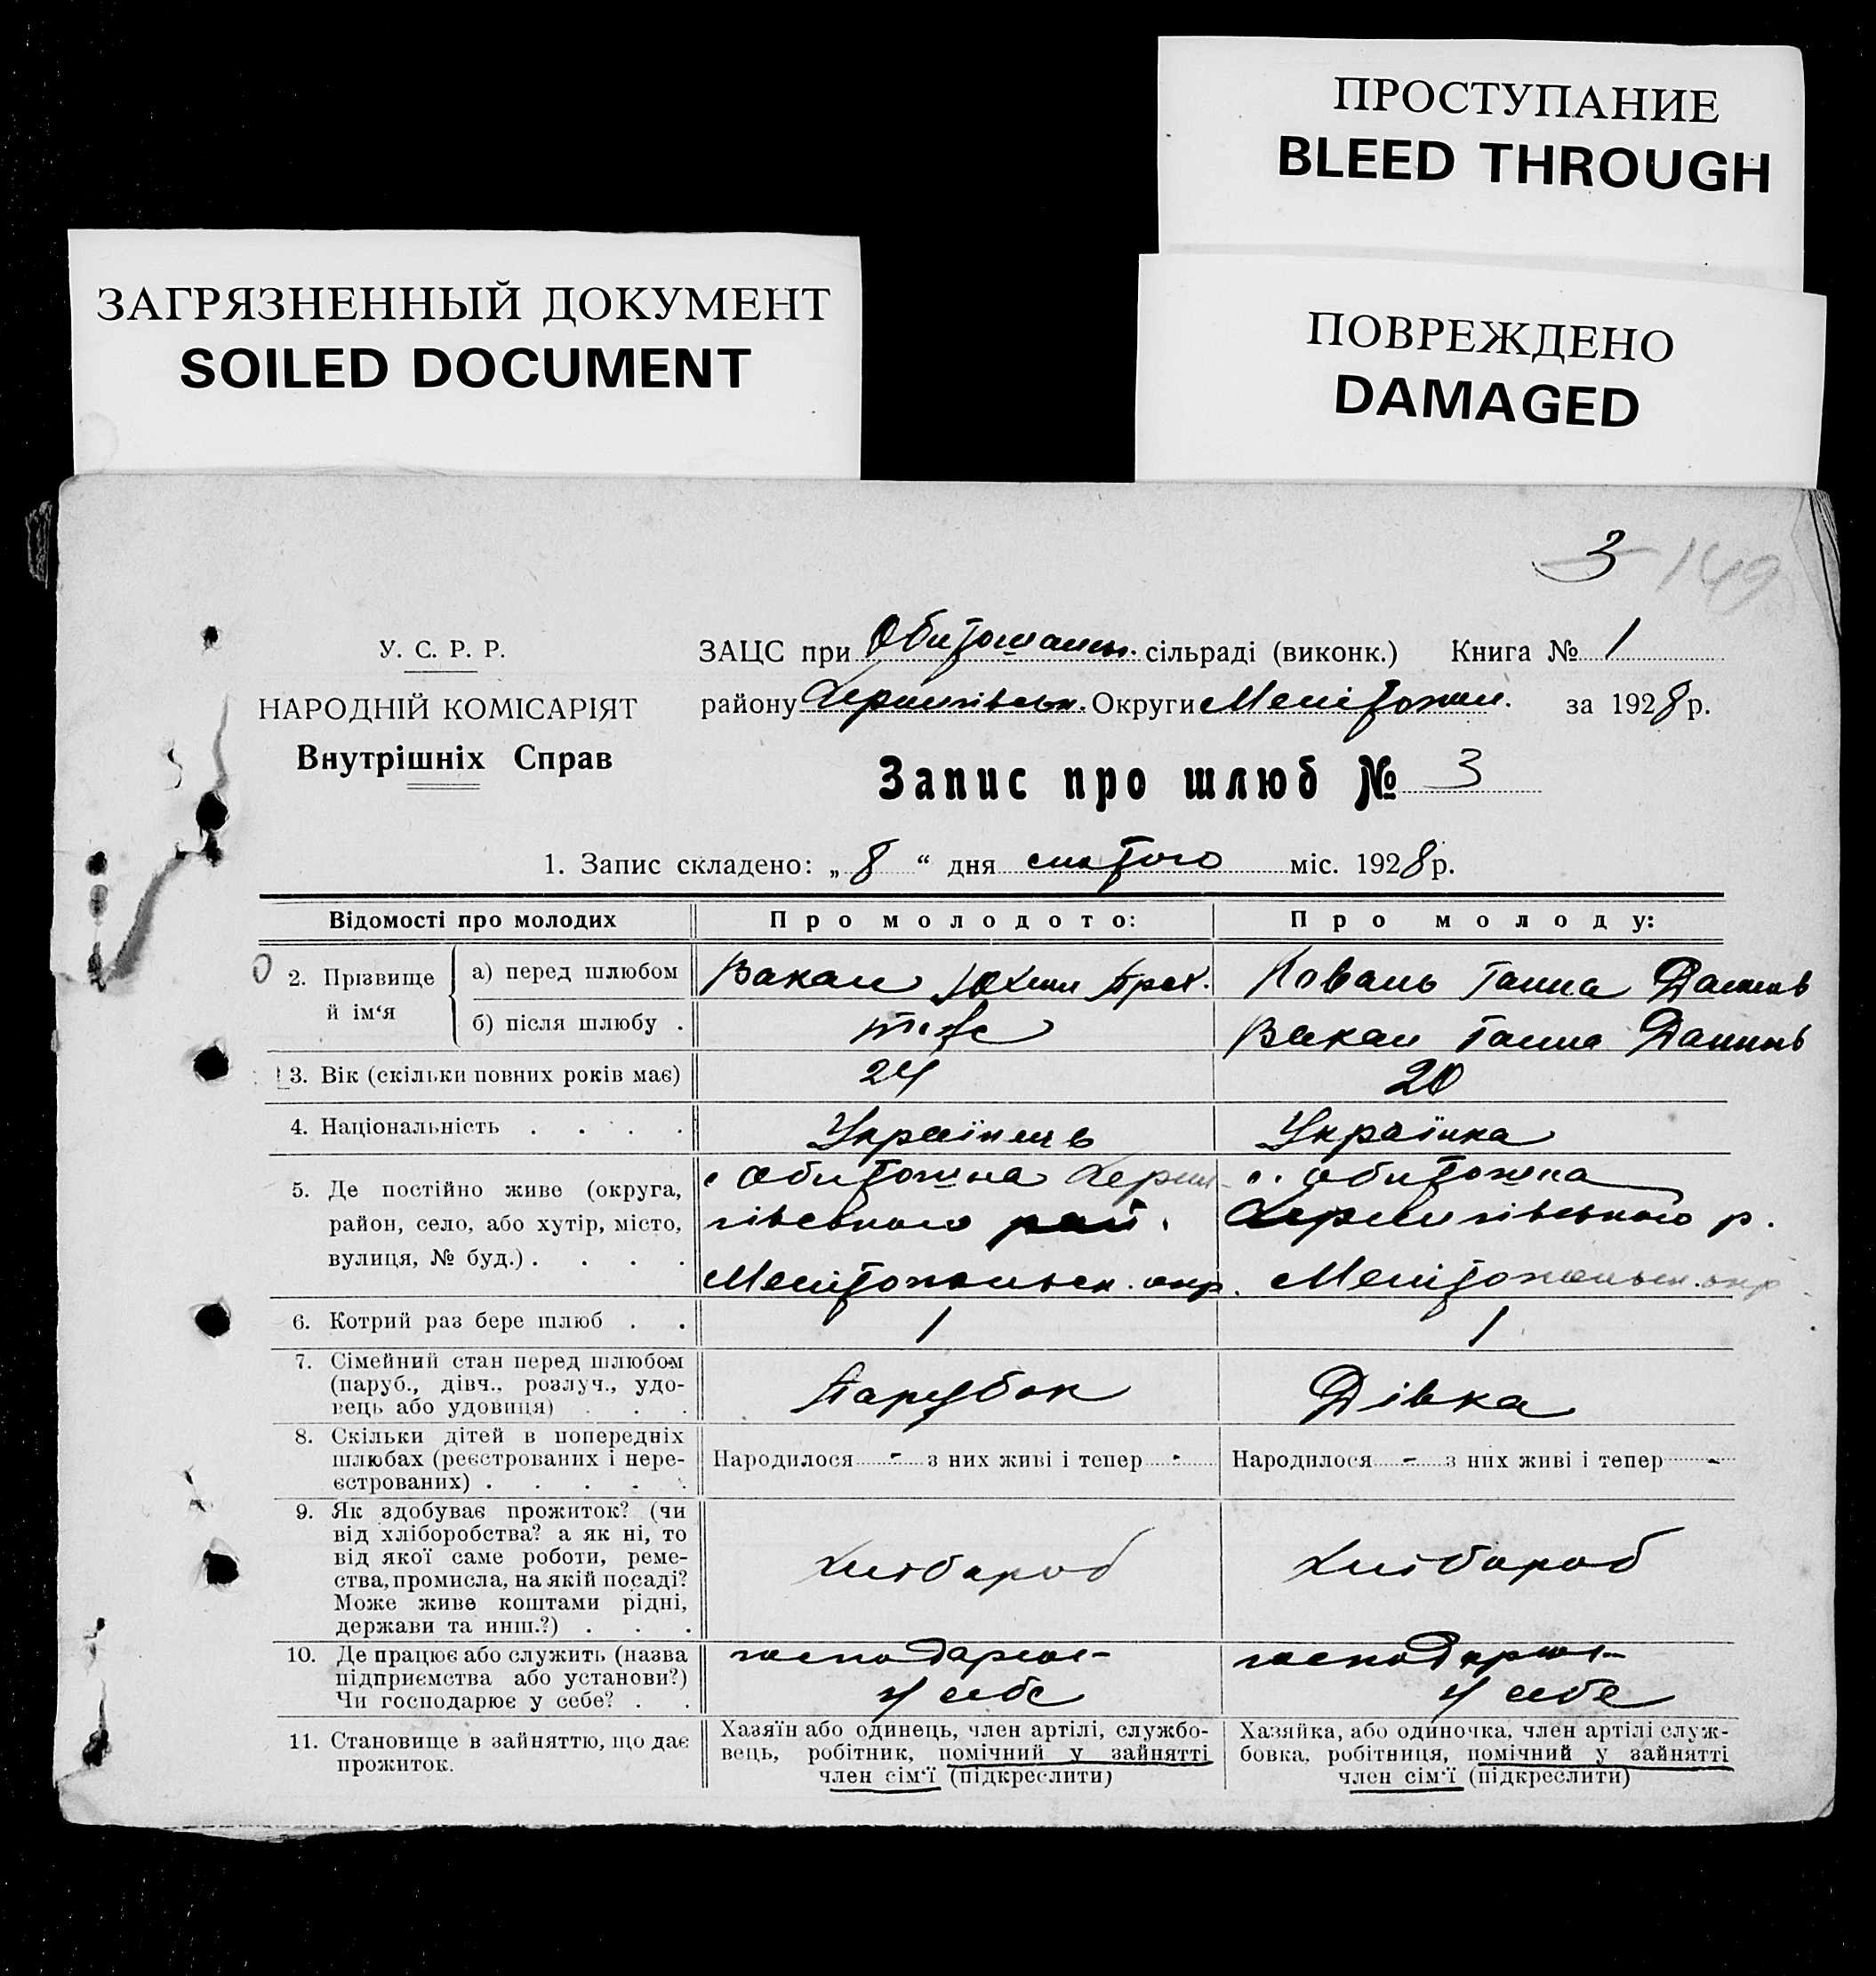 ПРОСТУПАНИЕ
BLEED THROUGH
ЗАГРЯЗНЕННЫЙ ДОКУМЕНТ
SOILED DOCUMENT
ПОВРЕЖДЕНО
DAMAGED
3 149
У. С. Р. Р.
НАРОДНІЙ КОМІСАРІЯТ
Внутрішніх Справ
ЗАЦС при сільраді (виконк.) Книга № 1
району Чернигівськ. Округи Меліτопол. за 1928 р.
Запис про шлюб № 3
1. Запис складено: „ 8 “ дня лютого міс. 1928 р.
Відомості про молодих Про молодого: Про молоду:
2. Прізвище й ім‘я
а) перед шлюбом Вакал Юхим Коваль Ганна
б) після шлюбу . теж Вакал Ганна
3. Вік (скільки повних років має) 24 20
4. Національність . . . . Українець Українка
5. Де постійно живе (округа, с Обиточна Черни- с. Обиточна
район, село, або хутір, місто, гівського рай. Чернигівського р.
вулиця, № буд.) . . . . Мелітопольськ. окр. Мелітопольськ. окр
6. Котрий раз бере шлюб . . 1 1
7. Сімейний стан перед шлюбом
(паруб., дівч., розлуч., удо-
вець або удовиця) . . . Парубок Дівка
8. Скільки дітей в попередніх
шлюбах (реєстрованих і нере-
єстрованих) . . . . . Народилося - з них живі і тепер - Народилося - з них живі і тепер -
9. Як здобуває прожиток? (чи
від хліборобства? а як ні, то
від якої саме роботи, реме-
ства, промисла, на якій посаді?
Може живе коштами рідні,
держави та инш.?) . . . Хлібороб Хлібороб
10. Де працює або служить (назва господарює- господарює-
підприємства або установи?)
Чи господарює у себе? . . у себе у себе
11. Становище в зайняттю, що дає
прожиток.
Хазяїн або одинець, член артілі, службо-
вець, робітник, помічний у зайнятті
член сім‘ї (підкреслити)
Хазяйка, або одиночка, член артілі служ-
бовка, робітниця, помічний у зайнятті
член сім‘ї (підкреслити)